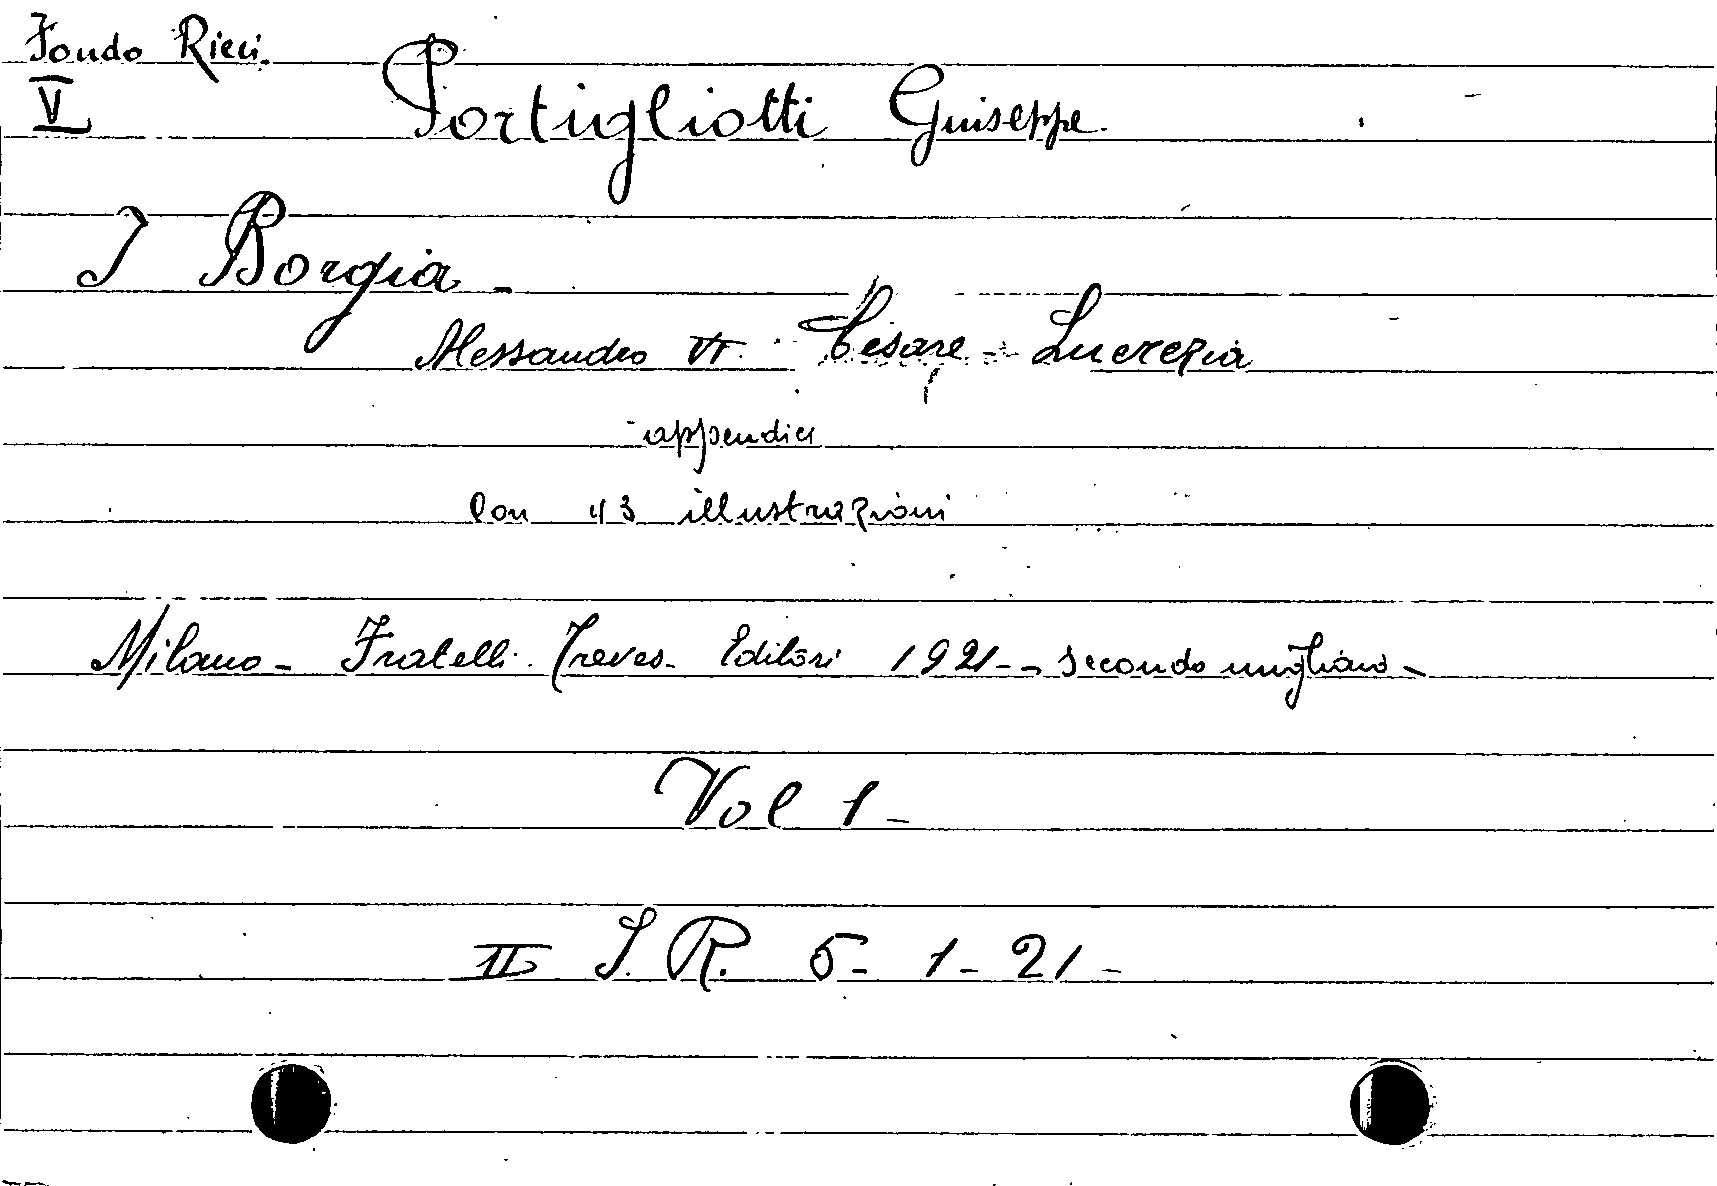 Fondo Ricci.
V Portigliotti Giuseppe.
I Borgia -
Alessandro VI. Cesare - Lucrezia
- appendice
Con 43 illustrazioni
Milano - Fratelli Treves - Editori 1921 - - secondo migliaio -
Vol 1 -
II S. R. 5 - 1 - 21 -